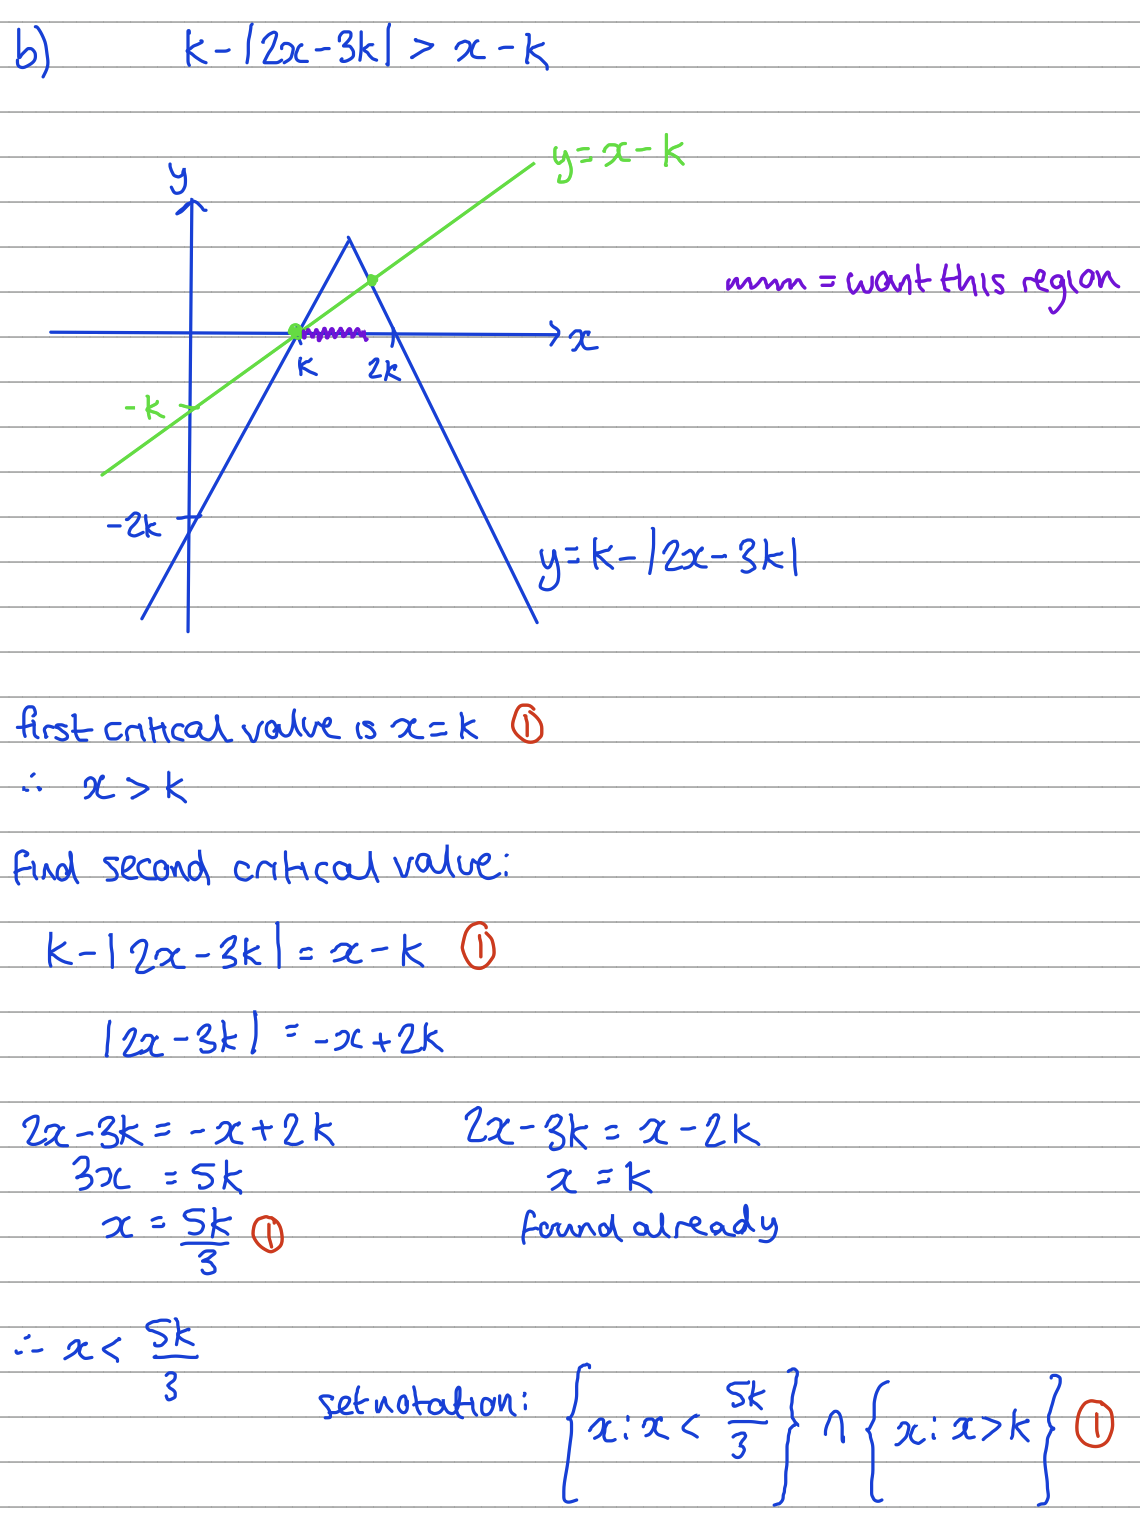 b) k-|2x-3k| > x-k
y=x-k
y
mm = want this region
x
k 2k
-k
-2k
y=k-|2x-3k|
first critical value is x=k ①
∴ x > k
find second critical value:
k-|2x-3k| = x-k ①
|2x-3k| = -x+2k
2x-3k = -x+2k 2x-3k = x-2k
3x = 5k x = k
x = 5k/3 ① found already
∴ x < 5k/3
set notation: {x: x < 5k/3} ∩ {x: x>k} ①